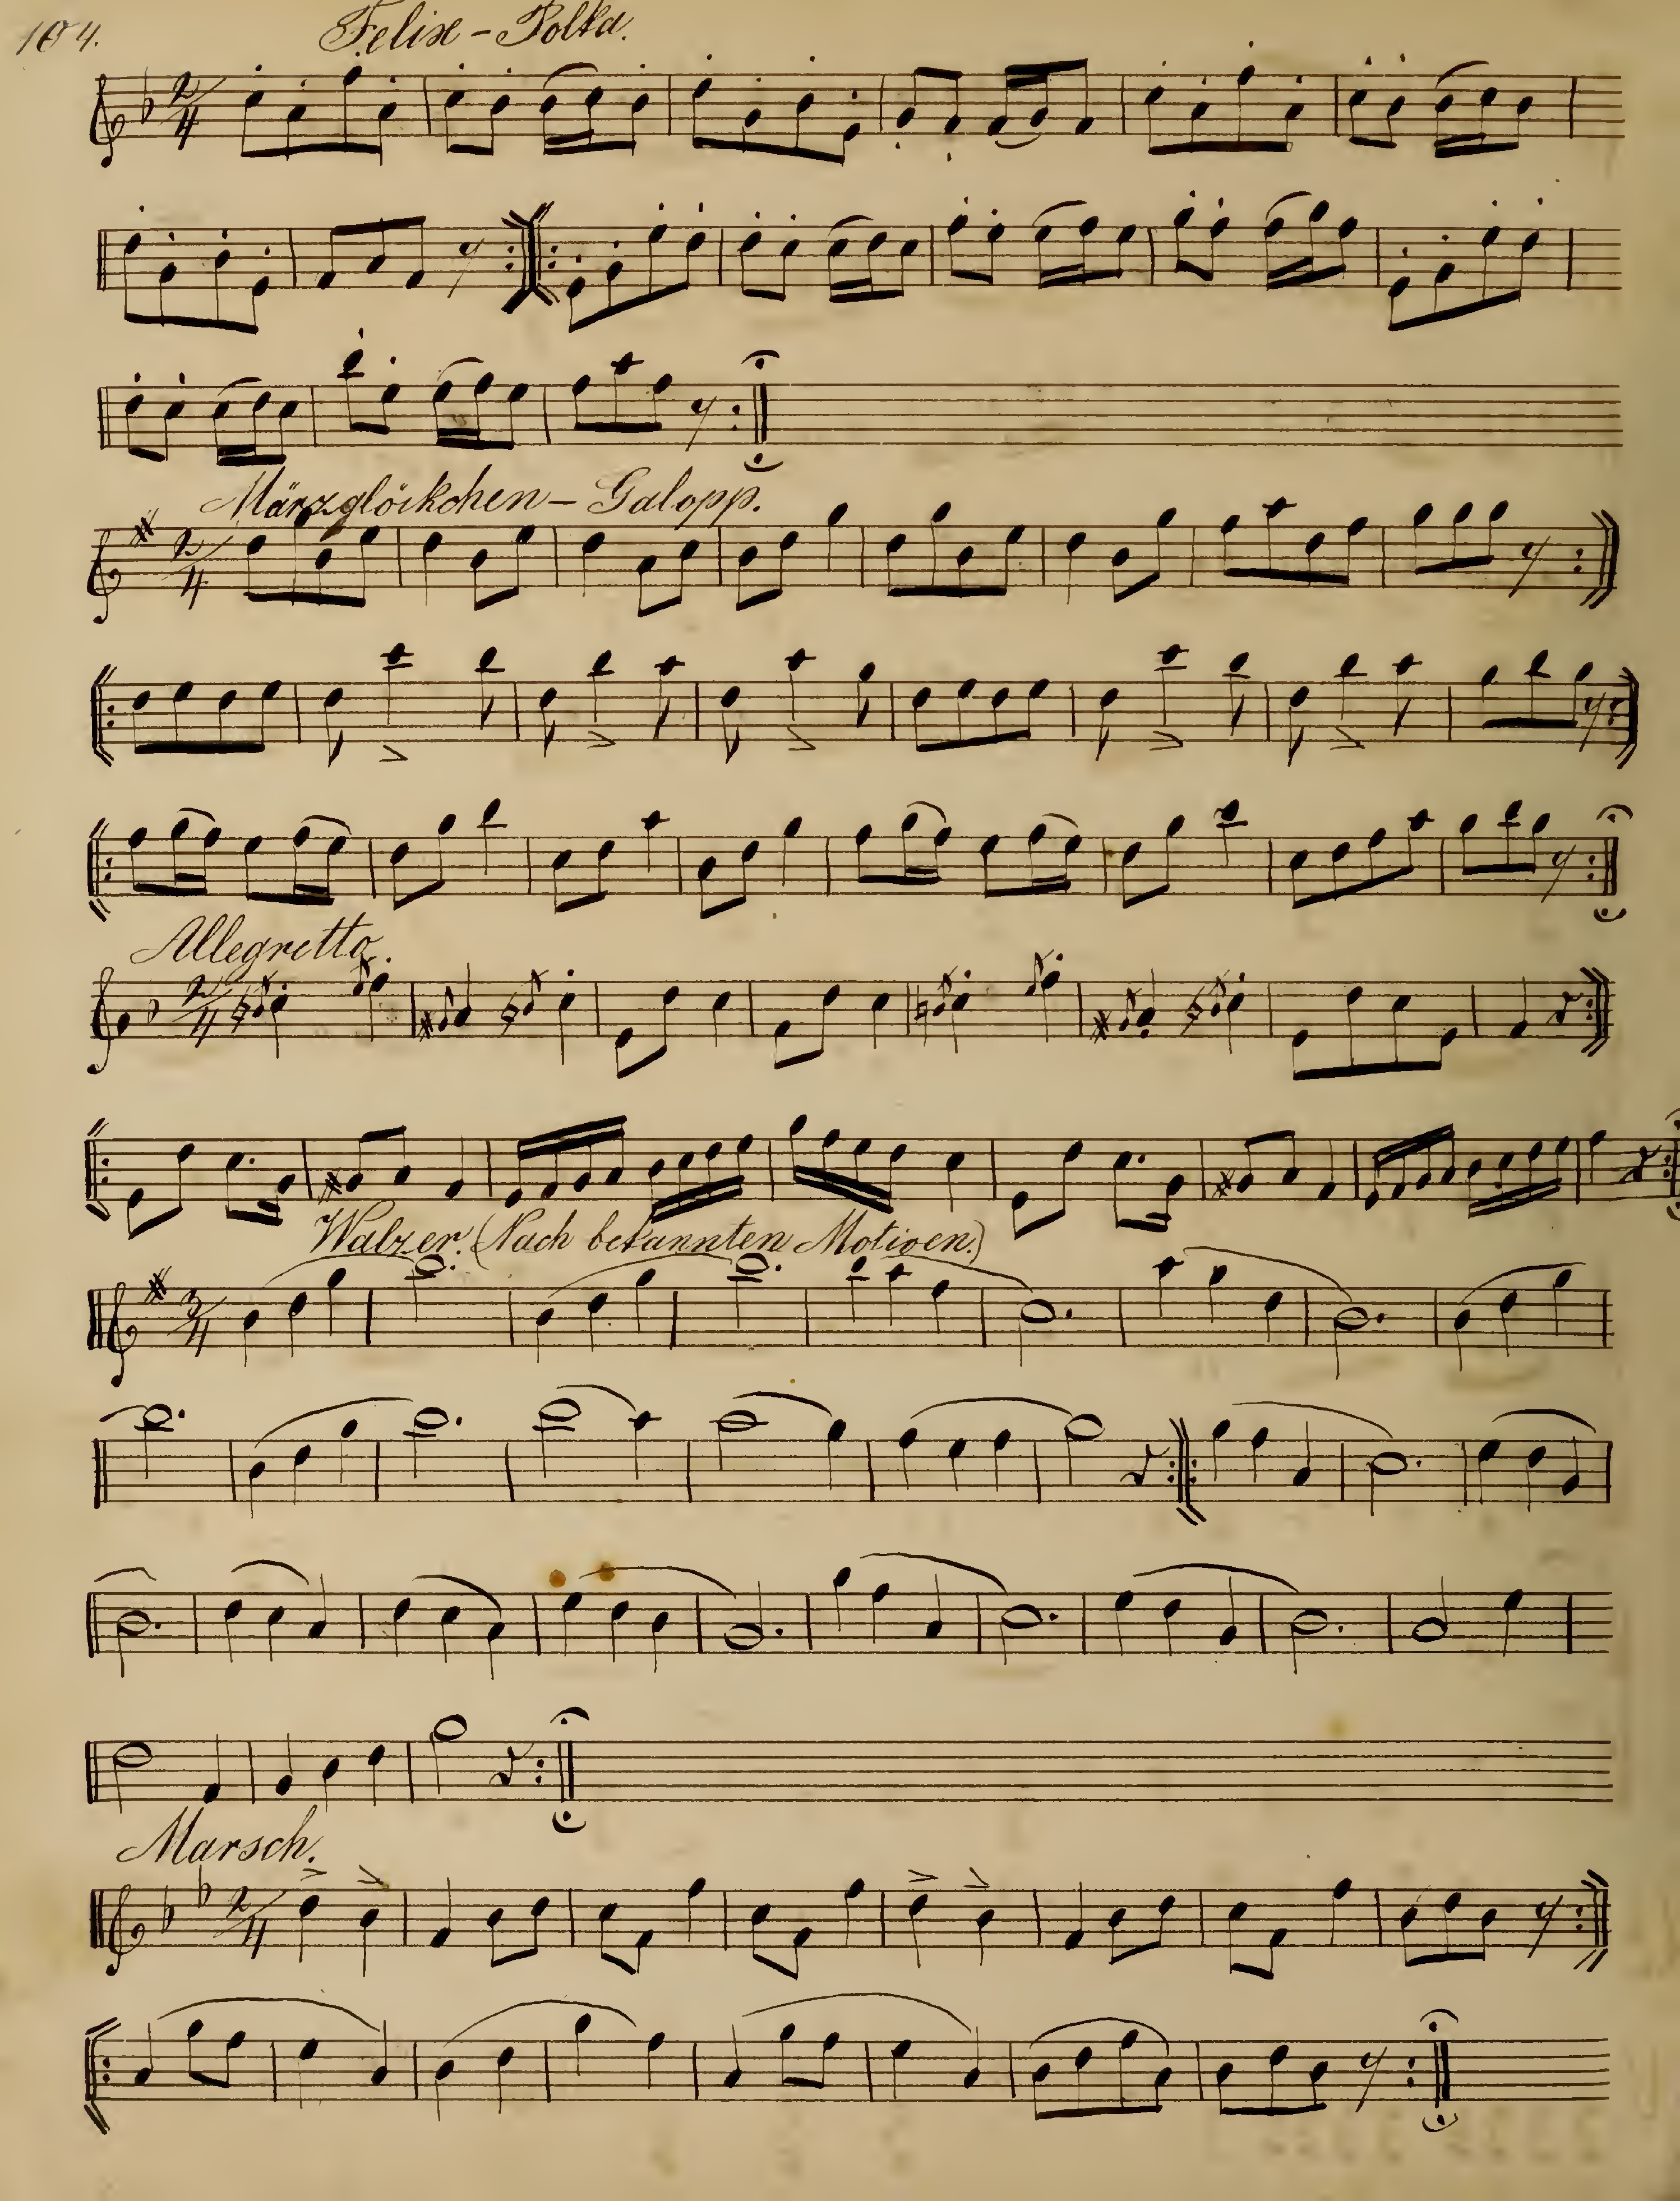 104.
Felix-Polka.
2/4
Märzglöckchen-Galopp.
2/4
Allegretto.
2/4
Walzer. (Nach bekannten Motiven.)
3/4
Marsch.
2/4